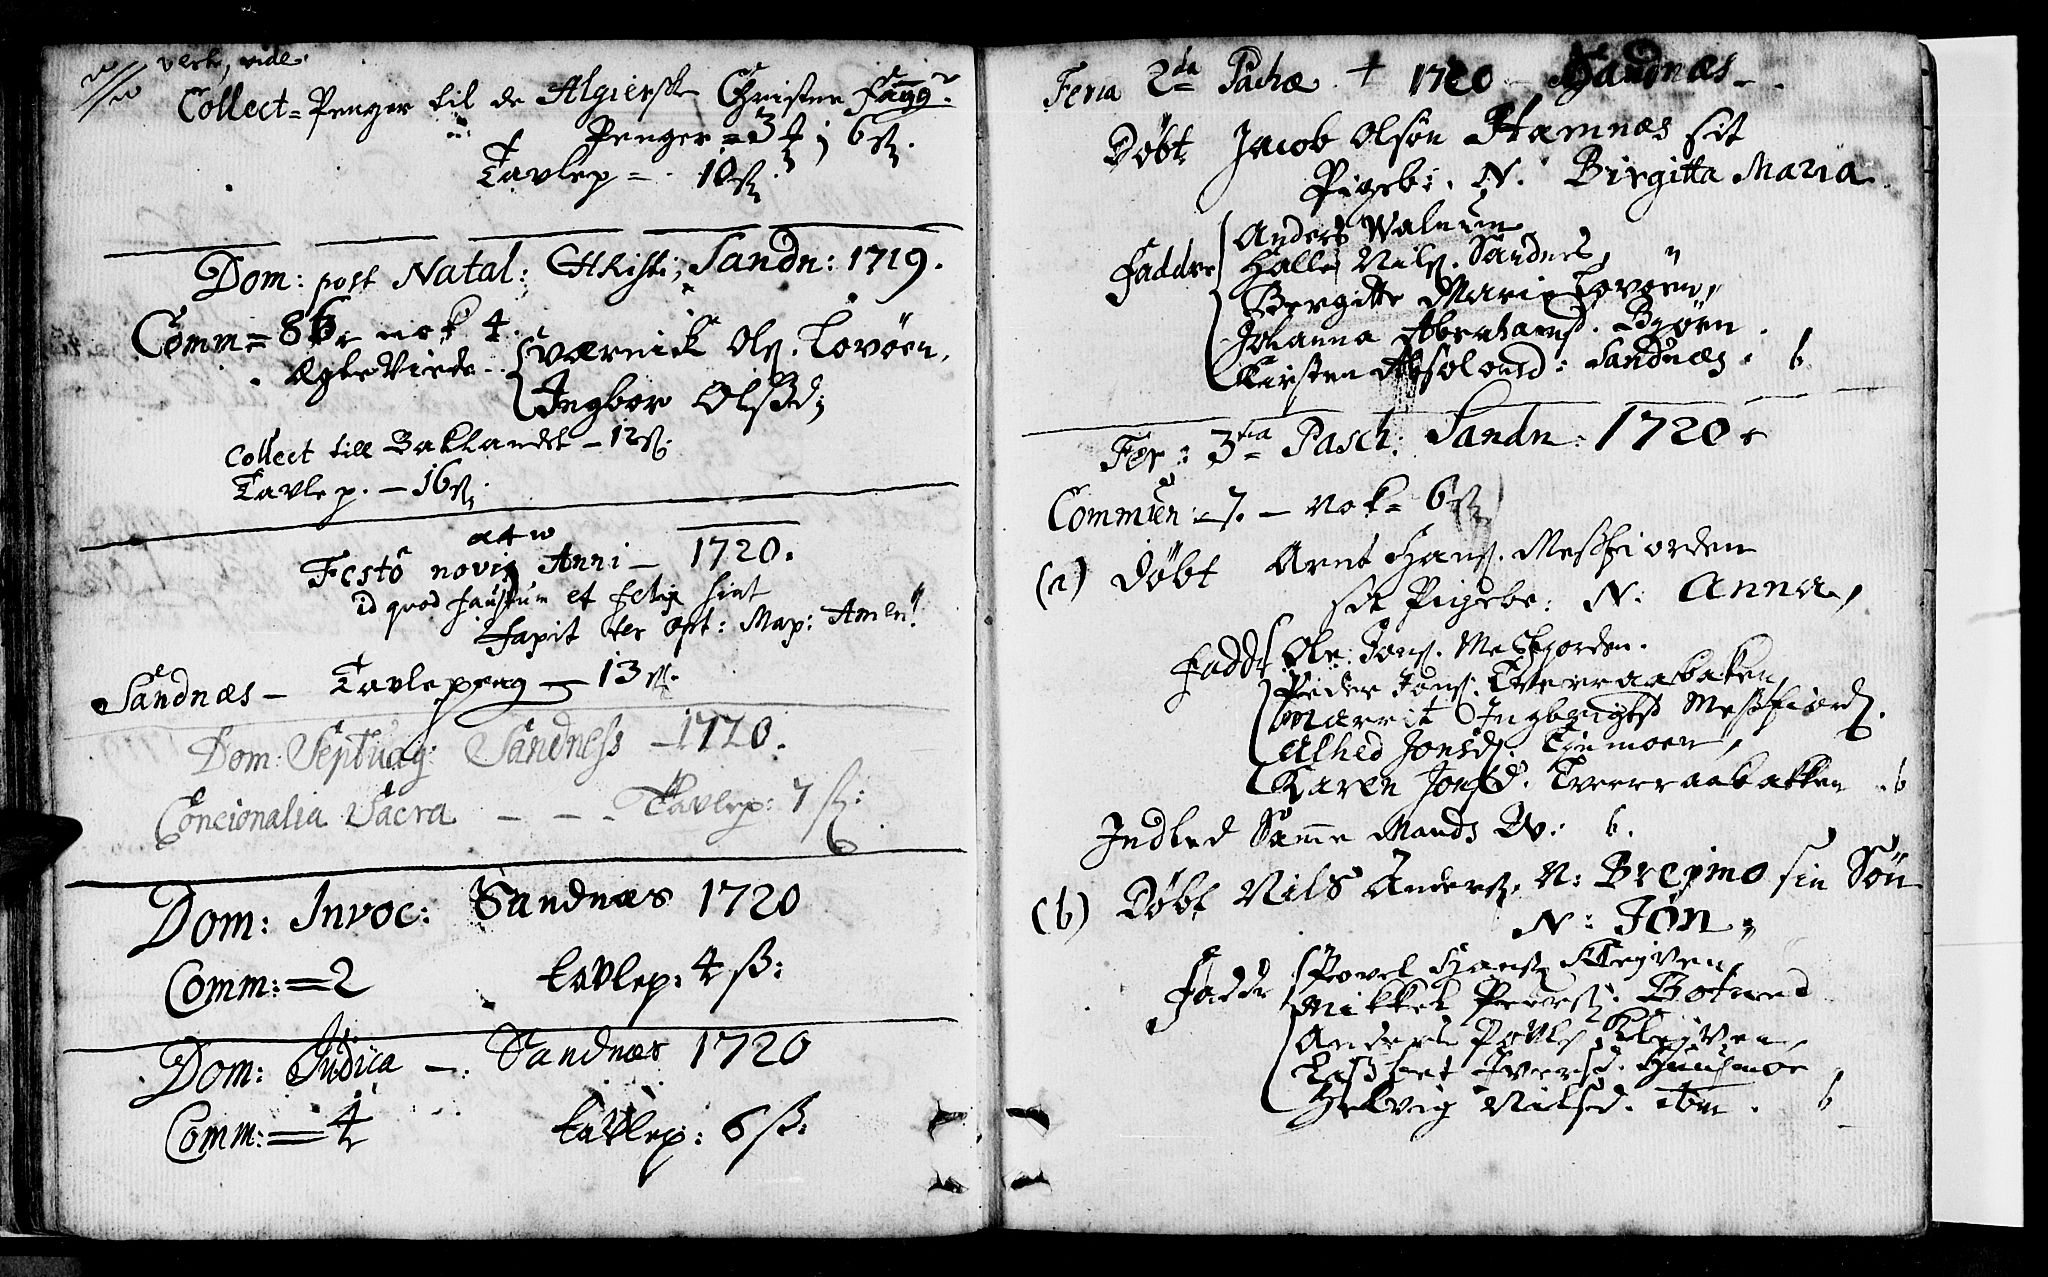 verte, vide.
Collect = Penger til de Algiersk Christne Fang
Penger = 3 ; 6 ß.
Tavlep = 10 ß.
Dom: post Natal: Christi; Sandn: 1719.
Comm = 8 nok 4.
ÆgteViede Værnick Ols. Lovöen,
Ingbor Olsd;
Collect till Baklandet – 12 ß.
Tavlep. – 16 ß.
Festo novi Anni – 1720.
id quod faustum et felix sint
faxit ter Opt: Max: Amen!
Sandnæs – Tavlepeng – 13 ß.
Dom: Septuag: Sandness – 1720.
Concionalia Sacra – – – Tavlep: 7 ß:
Dom: Invoc: Sandnæs 1720
Comm: = 2 tavlep: 4 ß:
Dom: Judica – Sandnæs 1720
Comm: = 4 tavlep: 6 ß:
Feria 2da Pachæ + 1720 – Sandnæs –
Döbt Jacob Olsön Hamnæs sit
Pigeb: N. Birgitta Maria
Faddre Anders Walnum
Halle Nils. Sandnes,
Bergitte Marie Lovöen,
Johanna Abrahamsd. Björn
Kirsten Absolonsd: Sandnæs. b.
Fer: 3tia Pasch: Sandn: 1720
Commun: 7. – nok = 6
(a) Döbt Arnt Hans. Meßfiorden
sit Pigebr: N: Anna,
Fadd: Ole Jons. Meßfjorden.
Peder Jons. Tverraabaken
Marrit Ingbrigtsd Meßfiord.
Alhed Jonsd. Tiemoen,
Karen Jonsd. Tverraabakken b
Indled Samme Mands W: b.
(b) Döbt Nils Anders. N: Brejmo sin Sön
N: Jon
Fadd: Povel Hans. Klejven
Mikkel Peders. Botned
Anders Povls Klejven,
Lisbet Iversd. Huusmoe,
Helvig Nilsd. ibm. b